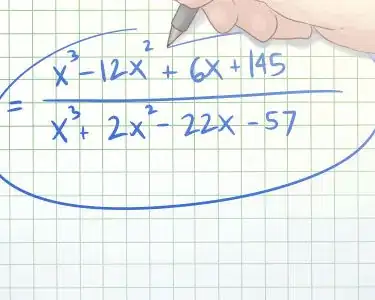 = x³ - 12x² + 6x + 145
x³ + 2x² - 22x - 57